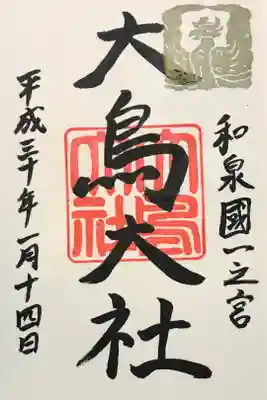 和泉國一之宮
大鳥大社
大鳥大社
平成三十年一月十四日